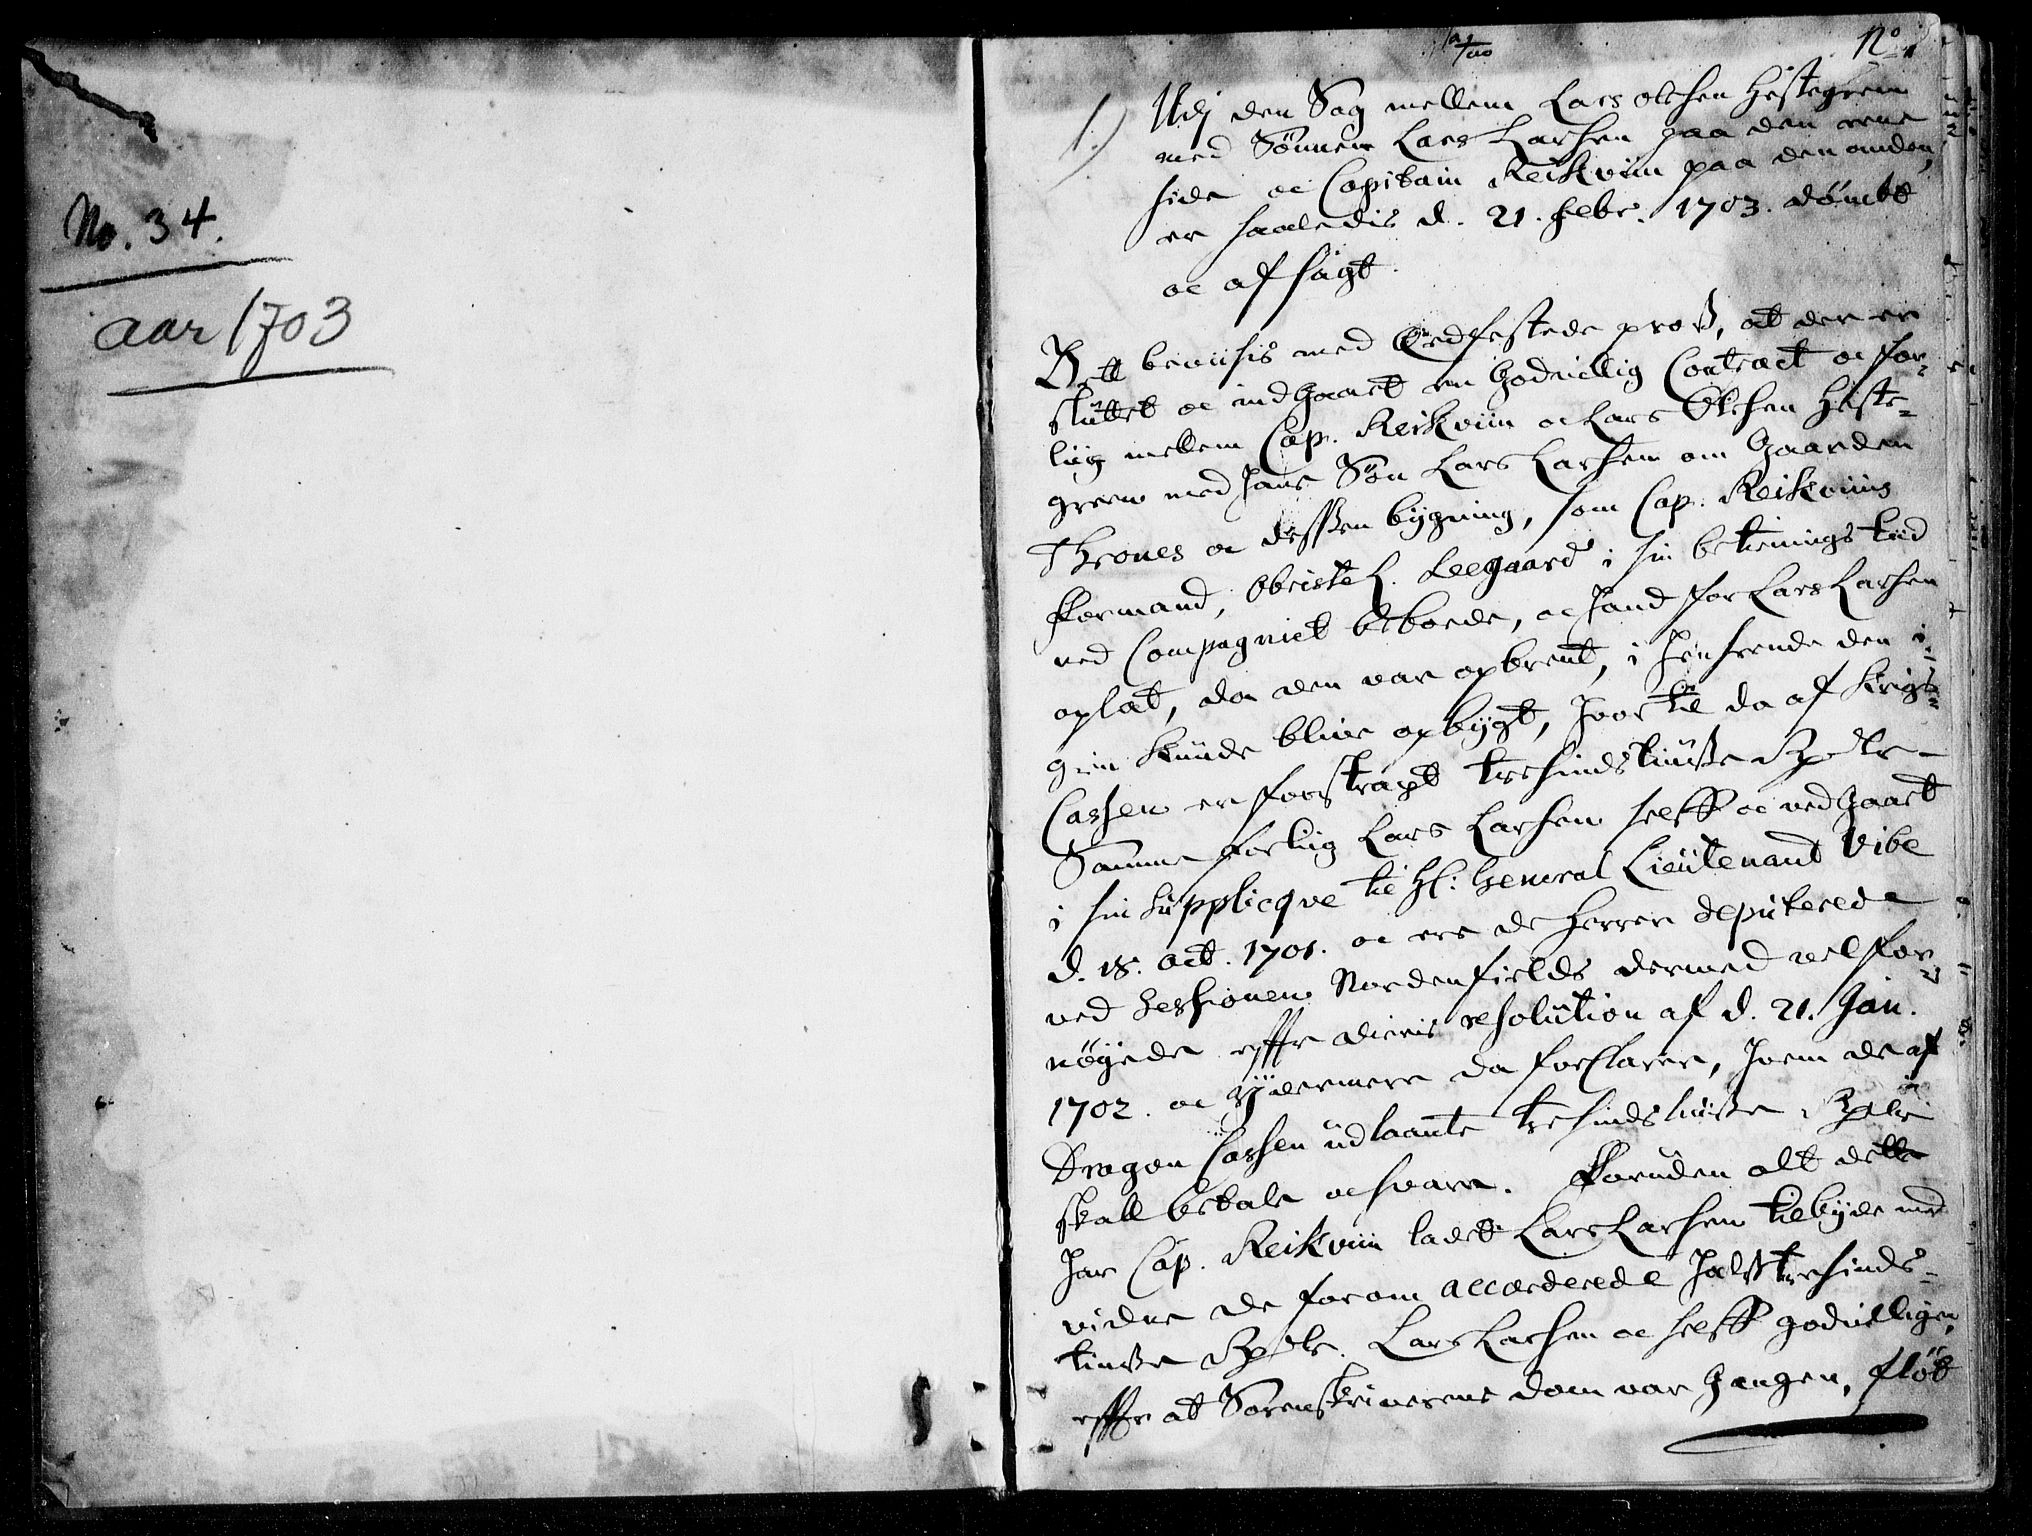 No. 34.
aar 1703
No 1
1.) Udj den Sag mellem Lars Olesen Hestegrein
med Sønnen Lars Larsen paa den eene
side oc Capitain Reikviin paa den anden,
er saaledis d. 21. Febr. 1703. dømbt
oc afsagt.
Dett beviisis med Eedfestede prov, at der er
sluttet oc indgaaet en Godvillig Contract oc for-
liig mellem Cap. Reikviin oc Lars Olesen Heste-
green med hans Søn Lars Larsen om Gaarden
Thrones oc dessen bygning, som Cap. Reikviins
Formand, Obriste L. Leegaard i sin betienings tiid
ved Compagniet beboede, oc hand for Lars Larsen
oplot, da den var opbrent, i henseende den i-
gien kunde blive opbygt, hvortil da af Krigs-
Cassen er forstragt tresindstiuffe Rdlr
Samme forliig Lars Larsen self oc vedgaaet
i sin supplicqve til Hl: General Lieutenant Vibe
d. 18. oct. 1701. oc ere de Herrer deputerede
ved Sessionen Nordenfields dermed vel for-
nøyede effter dieris resolution af d. 21. Jan.
1702. oc ydermere da forclarer, hvem de af
Dragon Cassen udlaante tresindstiuffe Rdlr
skall betale oc svare. Foruden alt dette
har Cap. Reikviin ladet Lars Larsen tilbyde med
vidne de forom accorderede halftresinds-
tiuffe Rdlr. Lars Larsen oc self godvilligen,
effter at Sorenskriverens dom var gangen, fløt